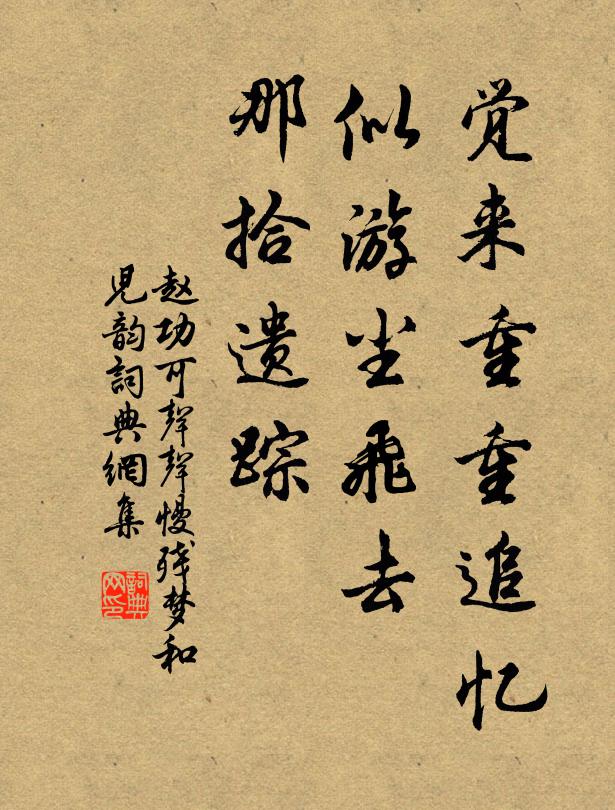 觉来重重追忆
似游尘飞去
那拾遗踪
赵功可聲聲慢残梦和
儿韵詞典網集
詞典网印